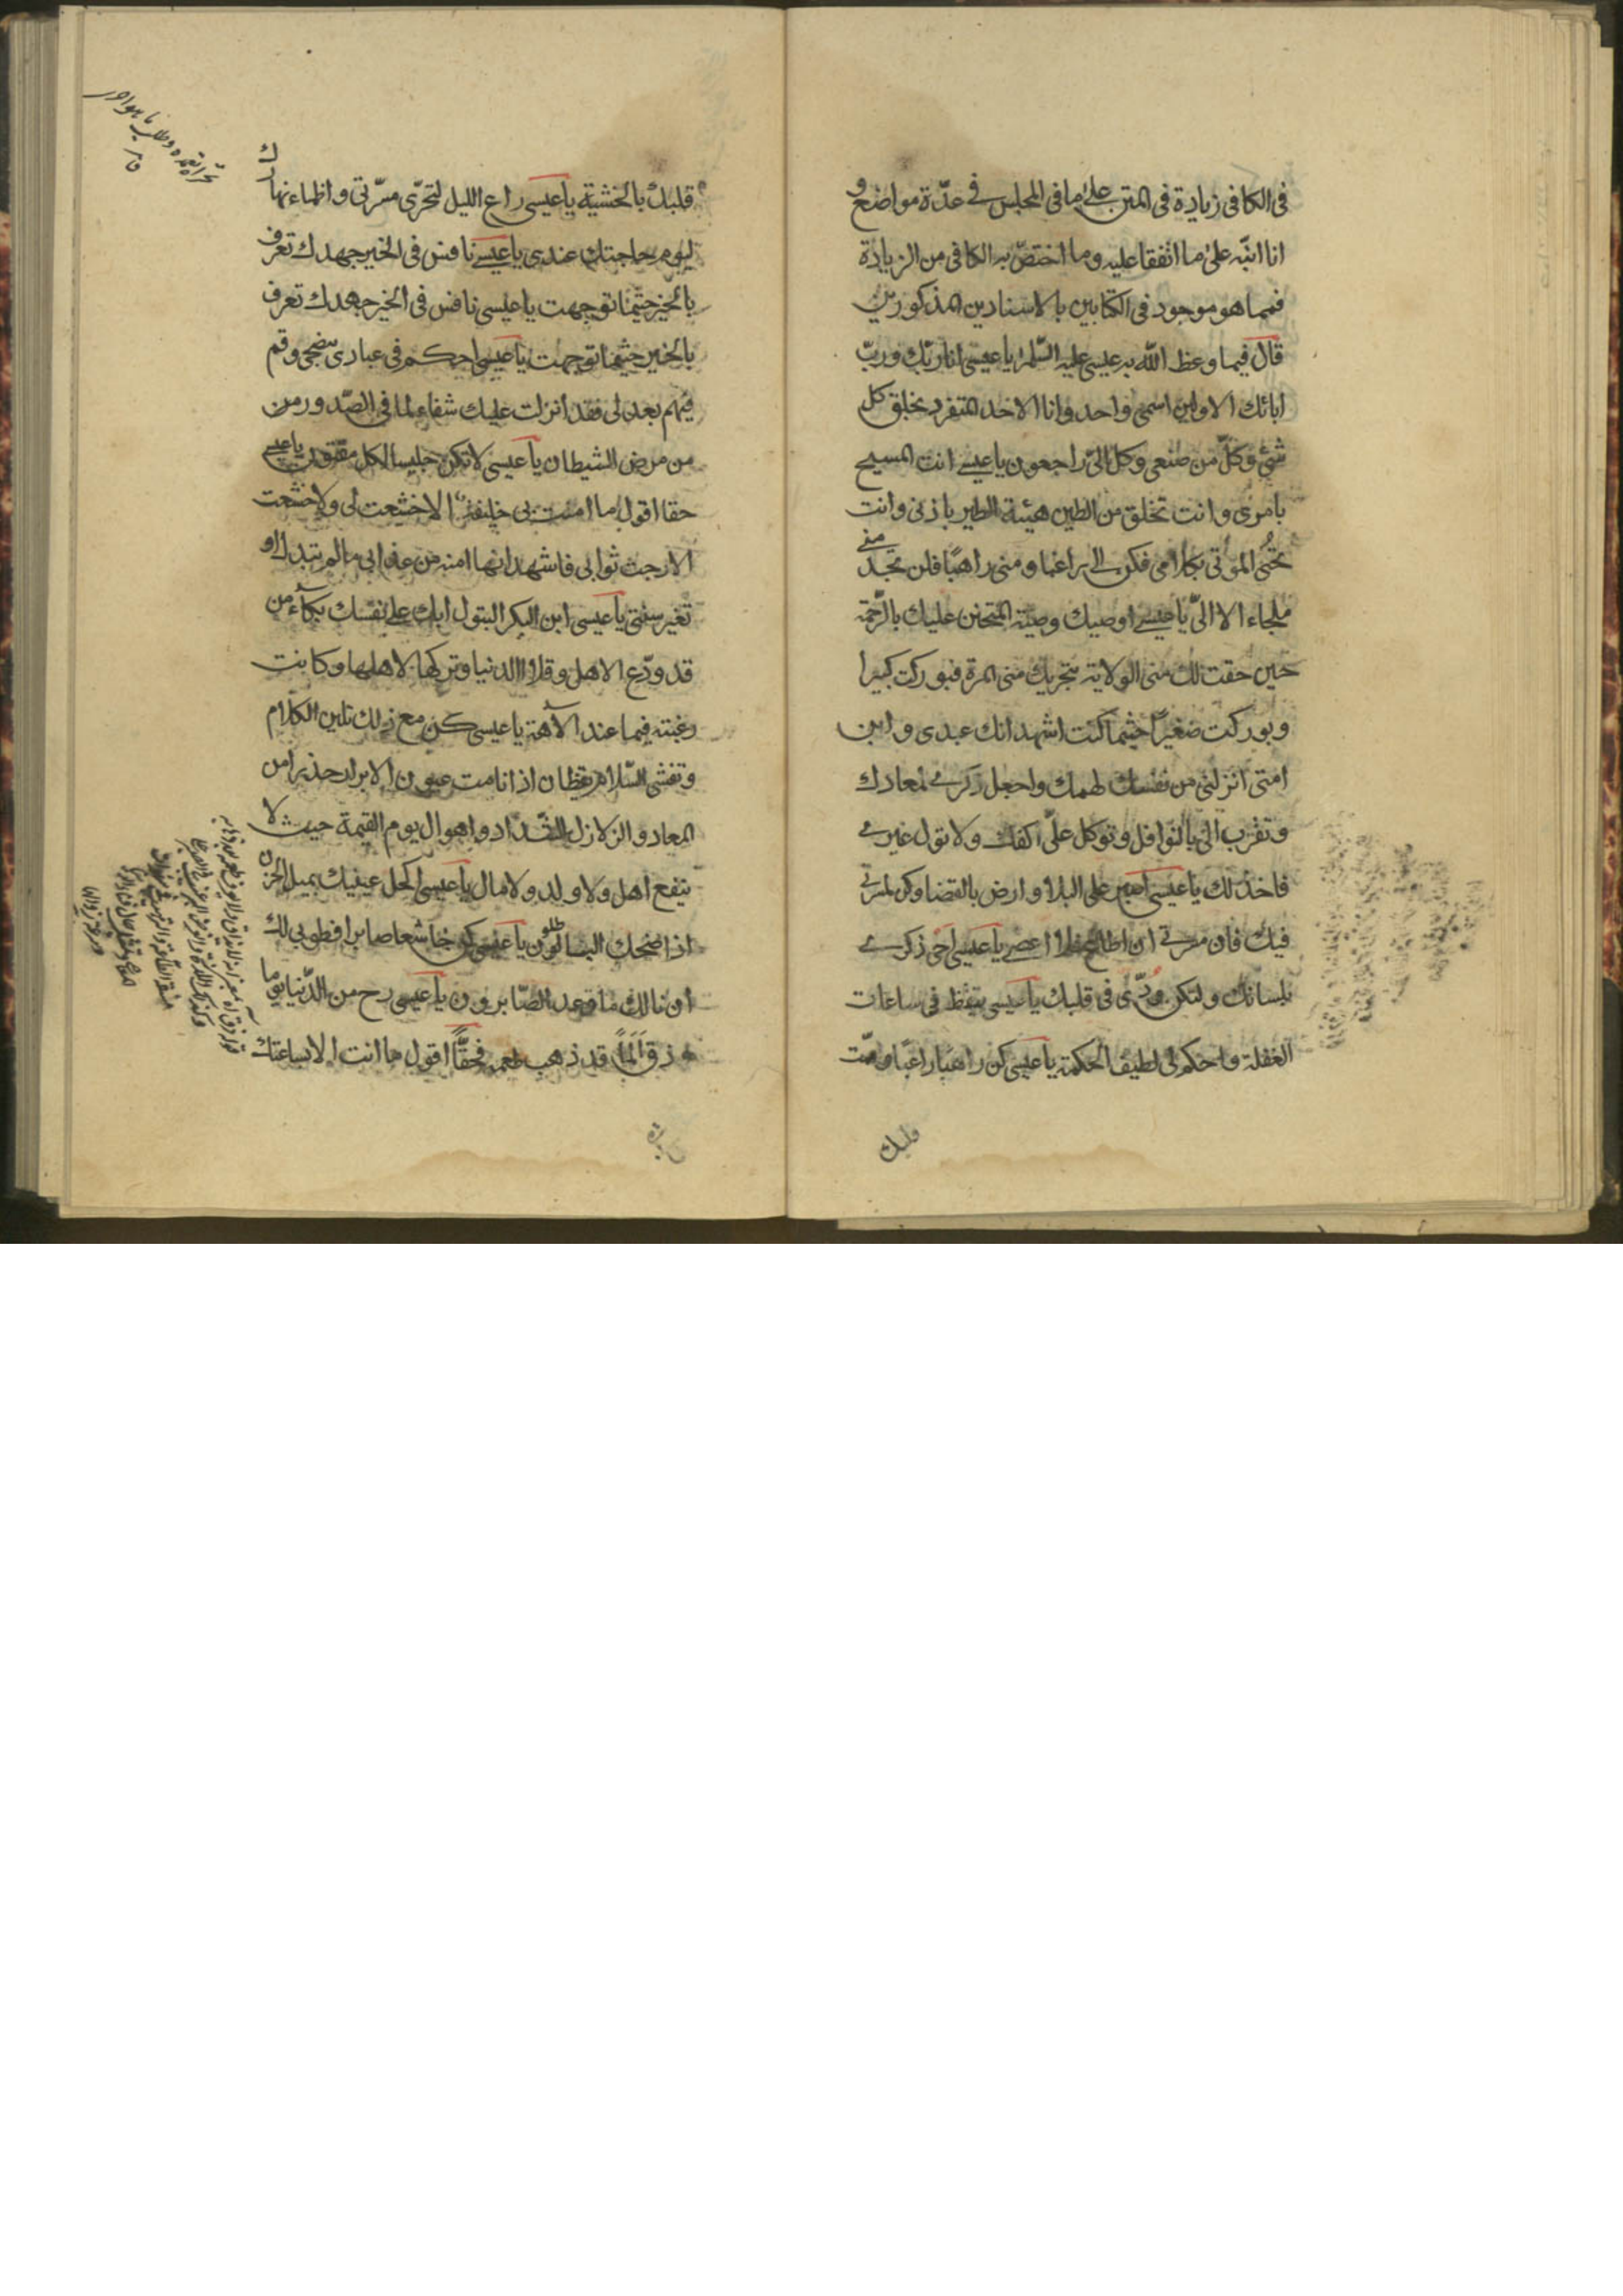 فى الكافى زيادة فى المتن على ما فى المجلس فى عدّة مواضع و
انا انبّه على ما اتفقا عليه وما اختصّ به الكافى من الزيادة
فمما هو موجود فى الكتابين بالاسنادين المذكورين
قال فيما وعظ الله به عيسى عليه السّلم يا عيسى انا ربّك وربّ
ابائك الاولين اسمى واحد وانا الاحد المتفرد بخلق كل
شئ وكلّ من صنعى وكل الىّ راجعون يا عيسى انت المسيح
بامرى وانت تخلق من الطين هيئة الطير باذنى وانت
تحيى الموتى بكلامى فكن الى راغبا ومنى راهبًا فلن تجد منى
ملجاء الا الىّ يا عيسى اوصيك وصيّة المتحنن عليك بالرّحمة
حين حقت لك منى الولاية بتحريك منى المسرة فبوركت كبيرا
وبوركت صغيرًا حيثما كنت اشهد انك عبدى وابن
امتى انزلنى من نفسك كهمك واجعل ذكرى لمعادك
وتقرب الىّ بالنوافل وتوكل علىّ اكفك ولا تول غيرى
فاخذلك يا عيسى اصبر على البلاء وارض بالقضا وكن لمسرتى
فيك فان مسرتى ان اطاع فلا اعصى يا عيسى احى ذكرى
بلسانك ولتكن ودّى فى قلبك يا عيسى تيقظ فى ساعات
الغفلة واحكم لى لطيف الحكمة يا عيسى كن راهبا راغبا وامت
قلبك
قلبك بالخشية يا عيسى راع الليل لتحرّى مسرّتى واظماء نهارك
ليوم حاجتك عندى يا عيسى نافس فى الخير جهدك تعرف
بالخير حيثما توجهت يا عيسى نافس فى الخير جهدك تعرف
بالخير حيثما توجهت يا عيسى احكم فى عبادى بنصحى وقم
فيهم بعدلى فقد انزلت عليك شفاء لما فى الصّدور من
من مرض الشيطان يا عيسى لا تكن جليسا لكل مفتون يا عيسى
حقا اقول ما امنت بى خليقة الا خشعت لى ولا خشعت
الا رجت ثوابى فاشهد انها امنة من عذابى ما لم تتبدل او
تغير سنتى يا عيسى ابن البكر البتول ابك على نفسك بكآء من
قد ودّع الاهل وقلا الدنيا وتركها لاهلها وكانت
رغبته فيما عند الآهه يا عيسى كن مع ذلك تلين الكلام
وتفشى السّلام يقظان اذا نامت عيون الابرار حذيرا من
المعاد والزلازل الشّداد واهوال يوم القيمة حيث لا
ينفع اهل ولا ولد ولا مال يا عيسى اكحل عينيك بميل الحزن
اذا ضحك البطالون يا عيسى كن خاشعا صابرا فطوبى لك
ان نالك ما وعد الصّابرون يا عيسى رح من الدّنيا يوما
وذق لما قد ذهب طعمه فحقًّا اقول ما انت الا بساعتك